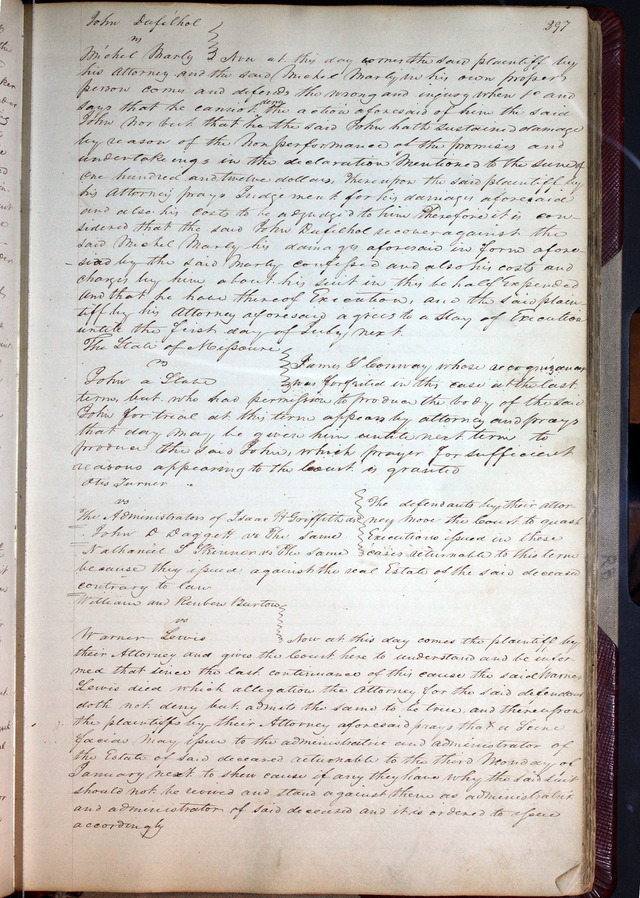 297
John Dufilhol
vs
Michel Marly } Now at this day comes the said plaintiff by
his Attorney and the said Michel Marly in his own proper
person comes and defends the wrong and injury when &c and
says that he cannot deny the action aforesaid of him the said
John nor but that he the said John hath sustained damage
by reason of the non performance of the promises and
undertakings in the declaration mentioned to the sum of
one hundred and twelve dollars, Thereupon the said plaintiff by
his Attorney prays Judgement for his damages aforesaid
and also his costs to be adjudged to him Therefore it is con-
sidered that the said John Dufilhol recover against the
said Michel Marly his damages aforesaid in form afore-
said by the said Marly confessed and also his costs and
charges by him about his suit in this behalf expended
and that he have thereof Execution, and the said plain-
tiff by his Attorney aforesaid agrees to a Stay of Execution
until the first day of July next.
The State of Missouri
vs
James S Conway whose recognizance
John a Slave
was forfeited in this case at the last
term, but who had permission to produce the body of the said
John for trial at this term appears by attorney and prays
that day may be given him until next term to
produce the said John, which prayer for sufficient
reasons appearing to the Court is granted
Otis Turner
vs
The Administrators of Isaac H Griffith
John D Daggett vs The same
Nathaniel S Skinner vs The same
The defendants by their attor-
ney move the Court to quash
Executions issued in these
cases returnable to this term
because they issued against the real Estate of the said deceased
contrary to law
William and Reuben Burton
vs
Warner Lewis } Now at this day comes the plaintiff by
their Attorney and give the Court here to understand and be infor
med that since the last continuance of this cause the said Warner
Lewis died which allegation the Attorney for the said defendant
doth not deny but admits the same to be true, and thereupon
the plaintiffs by their Attorney aforesaid prays that a Scire
Facias may issue to the administratrix and administrator of
the Estate of said deceased returnable to the third Monday of
January next to shew cause if any they have why the said suit
should not be revived and stand against them as administratrix
and administrator of said deceased and it is ordered to issue
accordingly